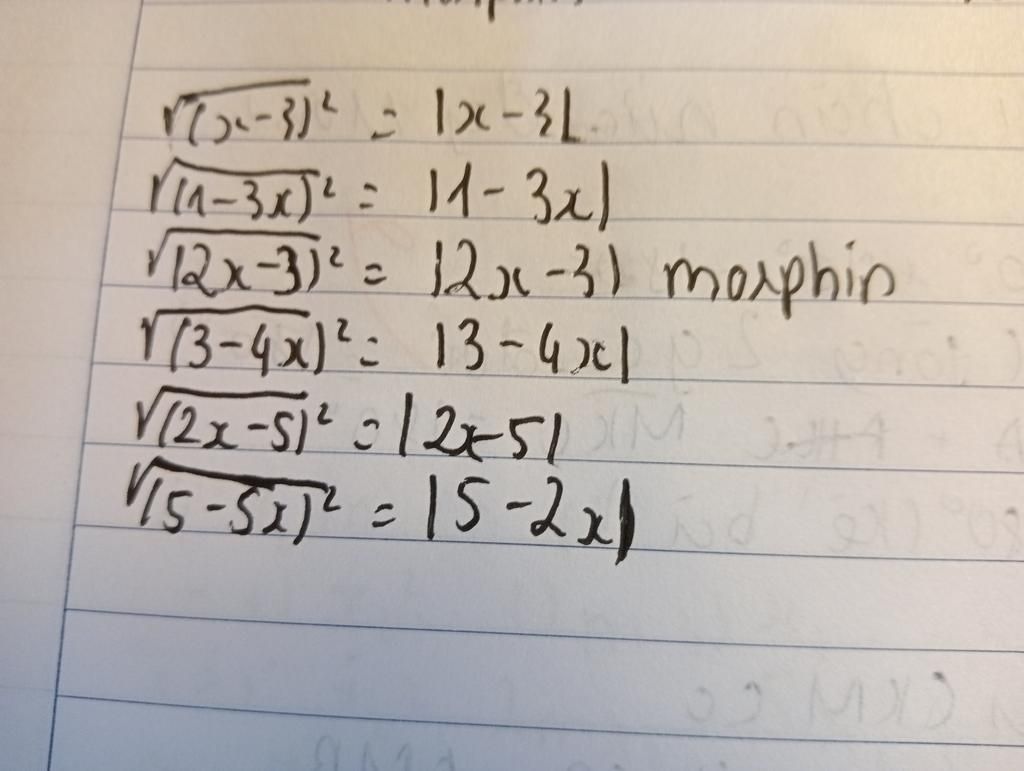 √(x-3)² = |x-3|
√(1-3x)² = |1-3x|
√(2x-3)² = |2x-3| morphin
√(3-4x)² = |3-4x|
√(2x-5)² = |2x-5|
√(5-5x)² = |5-2x|